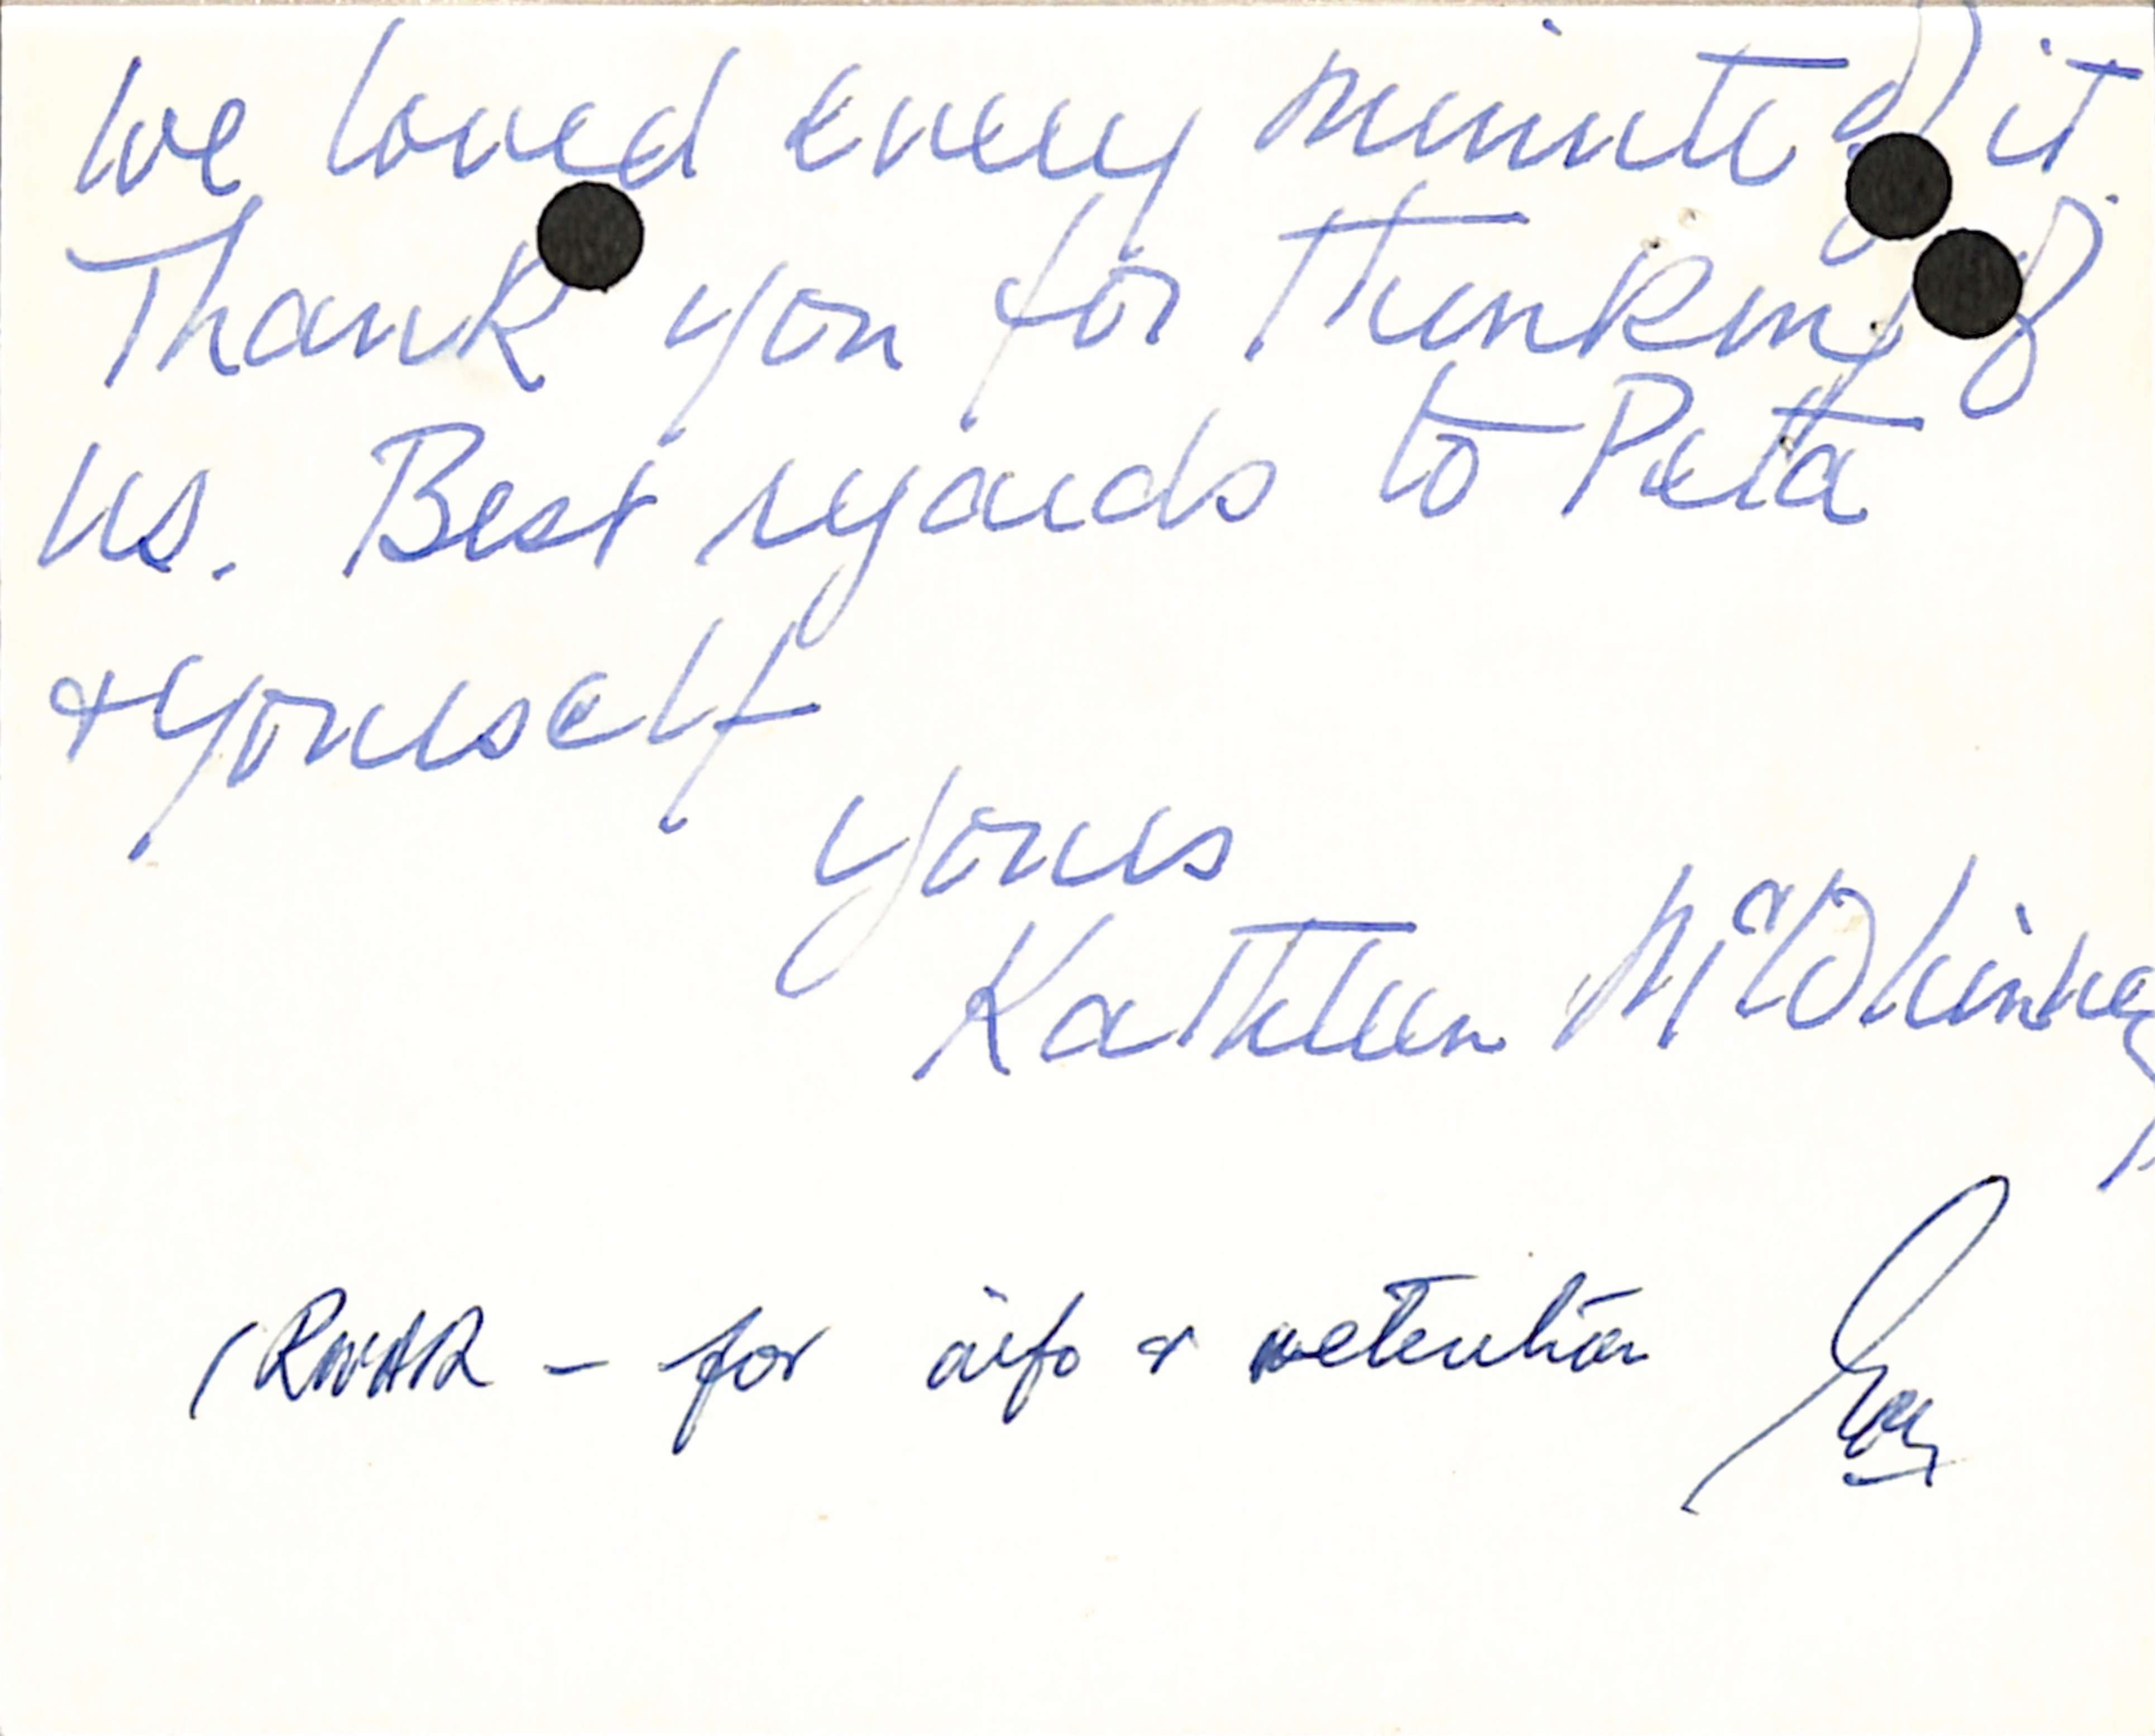 We loved every minute of it.
Thank you for thinking of
us. Best regards to Peta
& yourself
Yours
Kathleen McWhinney
– for info & retention